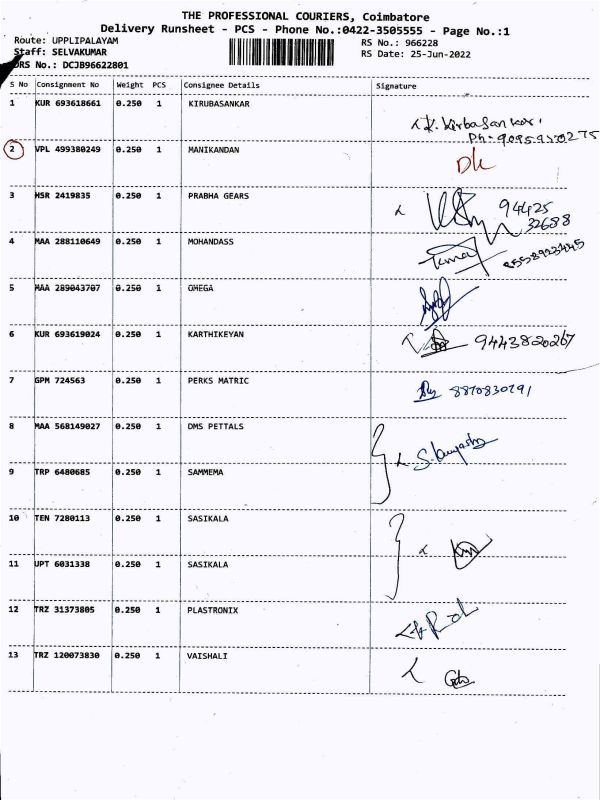 THE PROFESSIONAL COURIERS, Coimbatore
Delivery Runsheet - PCS - Phone No.:0422-3505555 - Page No.:1
Route: UPPLIPALAYAM
RS No.: 966228
Staff: SELVAKUMAR
RS Date: 25-Jun-2022
DRS No.: DCJB96622801
S No Consignment No Weight PCS Consignee Details Signature
1 KUR 693618661 0.250 1 KIRUBASANKAR
K. Kirbasankar
2 VPL 499380249 0.250 1 MANIKANDAN
3 HSR 2419835 0.250 1 PRABHA GEARS 94425
32688
4 MAA 288110649 0.250 1 MOHANDASS
5 MAA 289043707 0.250 1 OMEGA
6 KUR 693619024 0.250 1 KARTHIKEYAN 9443820267
7 GPM 724563 0.250 1 PERKS MATRIC 8870830791
8 MAA 568149027 0.250 1 DMS PETTALS
9 TRP 6480685 0.250 1 SAMMEMA
10 TEN 7280113 0.250 1 SASIKALA
11 UPT 6031338 0.250 1 SASIKALA
12 TRZ 31373805 0.250 1 PLASTRONIX
13 TRZ 120073830 0.250 1 VAISHALI